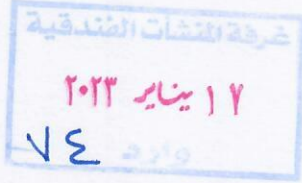 غرفة المنشآت الفندقية
١٧ يناير ٢٠٢٣
وارد ٧٤